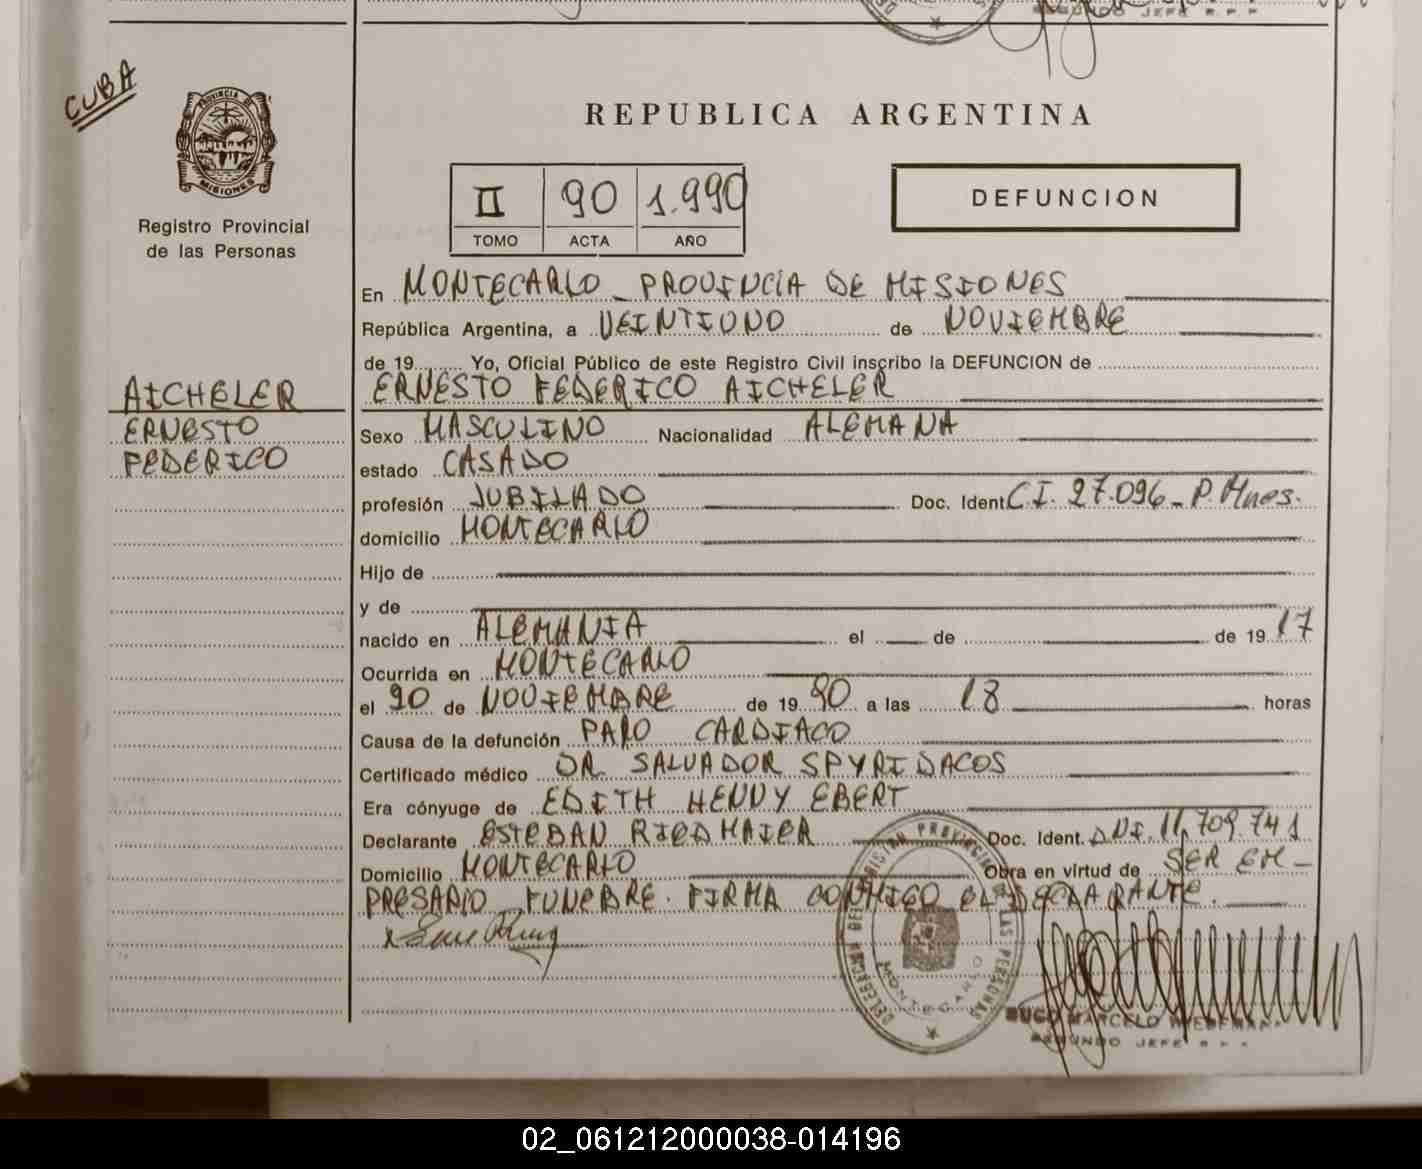 CUBA
PROVINCIA DE
MISIONES
Registro Provincial
de las Personas
REPUBLICA ARGENTINA
II 90 1.990
TOMO ACTA AÑO
DEFUNCION
En MONTECARLO - PROVINCIA DE MISIONES
República Argentina, a VEINTIUNO de NOVIEMBRE
de 19 Yo, Oficial Público de este Registro Civil inscribo la DEFUNCION de
AICHELER ERNESTO FEDERICO AICHELER
ERNESTO Sexo MASCULINO Nacionalidad ALEMANA
FEDERICO estado CASADO
profesión JUBILADO Doc. Ident C.I. 27.096 - P. Mnes.
domicilio MONTECARLO
Hijo de
y de
nacido en ALEMANIA el de de 19 17
Ocurrida en MONTECARLO
el de NOVIEMBRE de 19 90 a las 18 horas
Causa de la defunción PARO CARDIACO
Certificado médico DR. SALVADOR SPYRIDACOS
Era cónyuge de EDITH HENNY EBERT
Declarante ESTEBAN RIEDMAIER Doc. Ident. DNI. 11.709.741
Domicilio MONTECARLO Obra en virtud de SER EM-
PRESARIO FUNEBRE. FIRMA CONMIGO EL DECLARANTE.
MONTECARLO
HUGO MARCELO
SEGUNDO JEFE R.P.P.
02_061212000038-014196